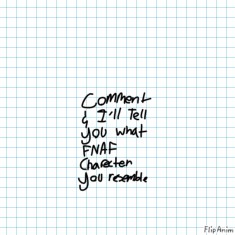 Comment
& I'll Tell
You what
FNAF
Character
You resemble
FlipAnim